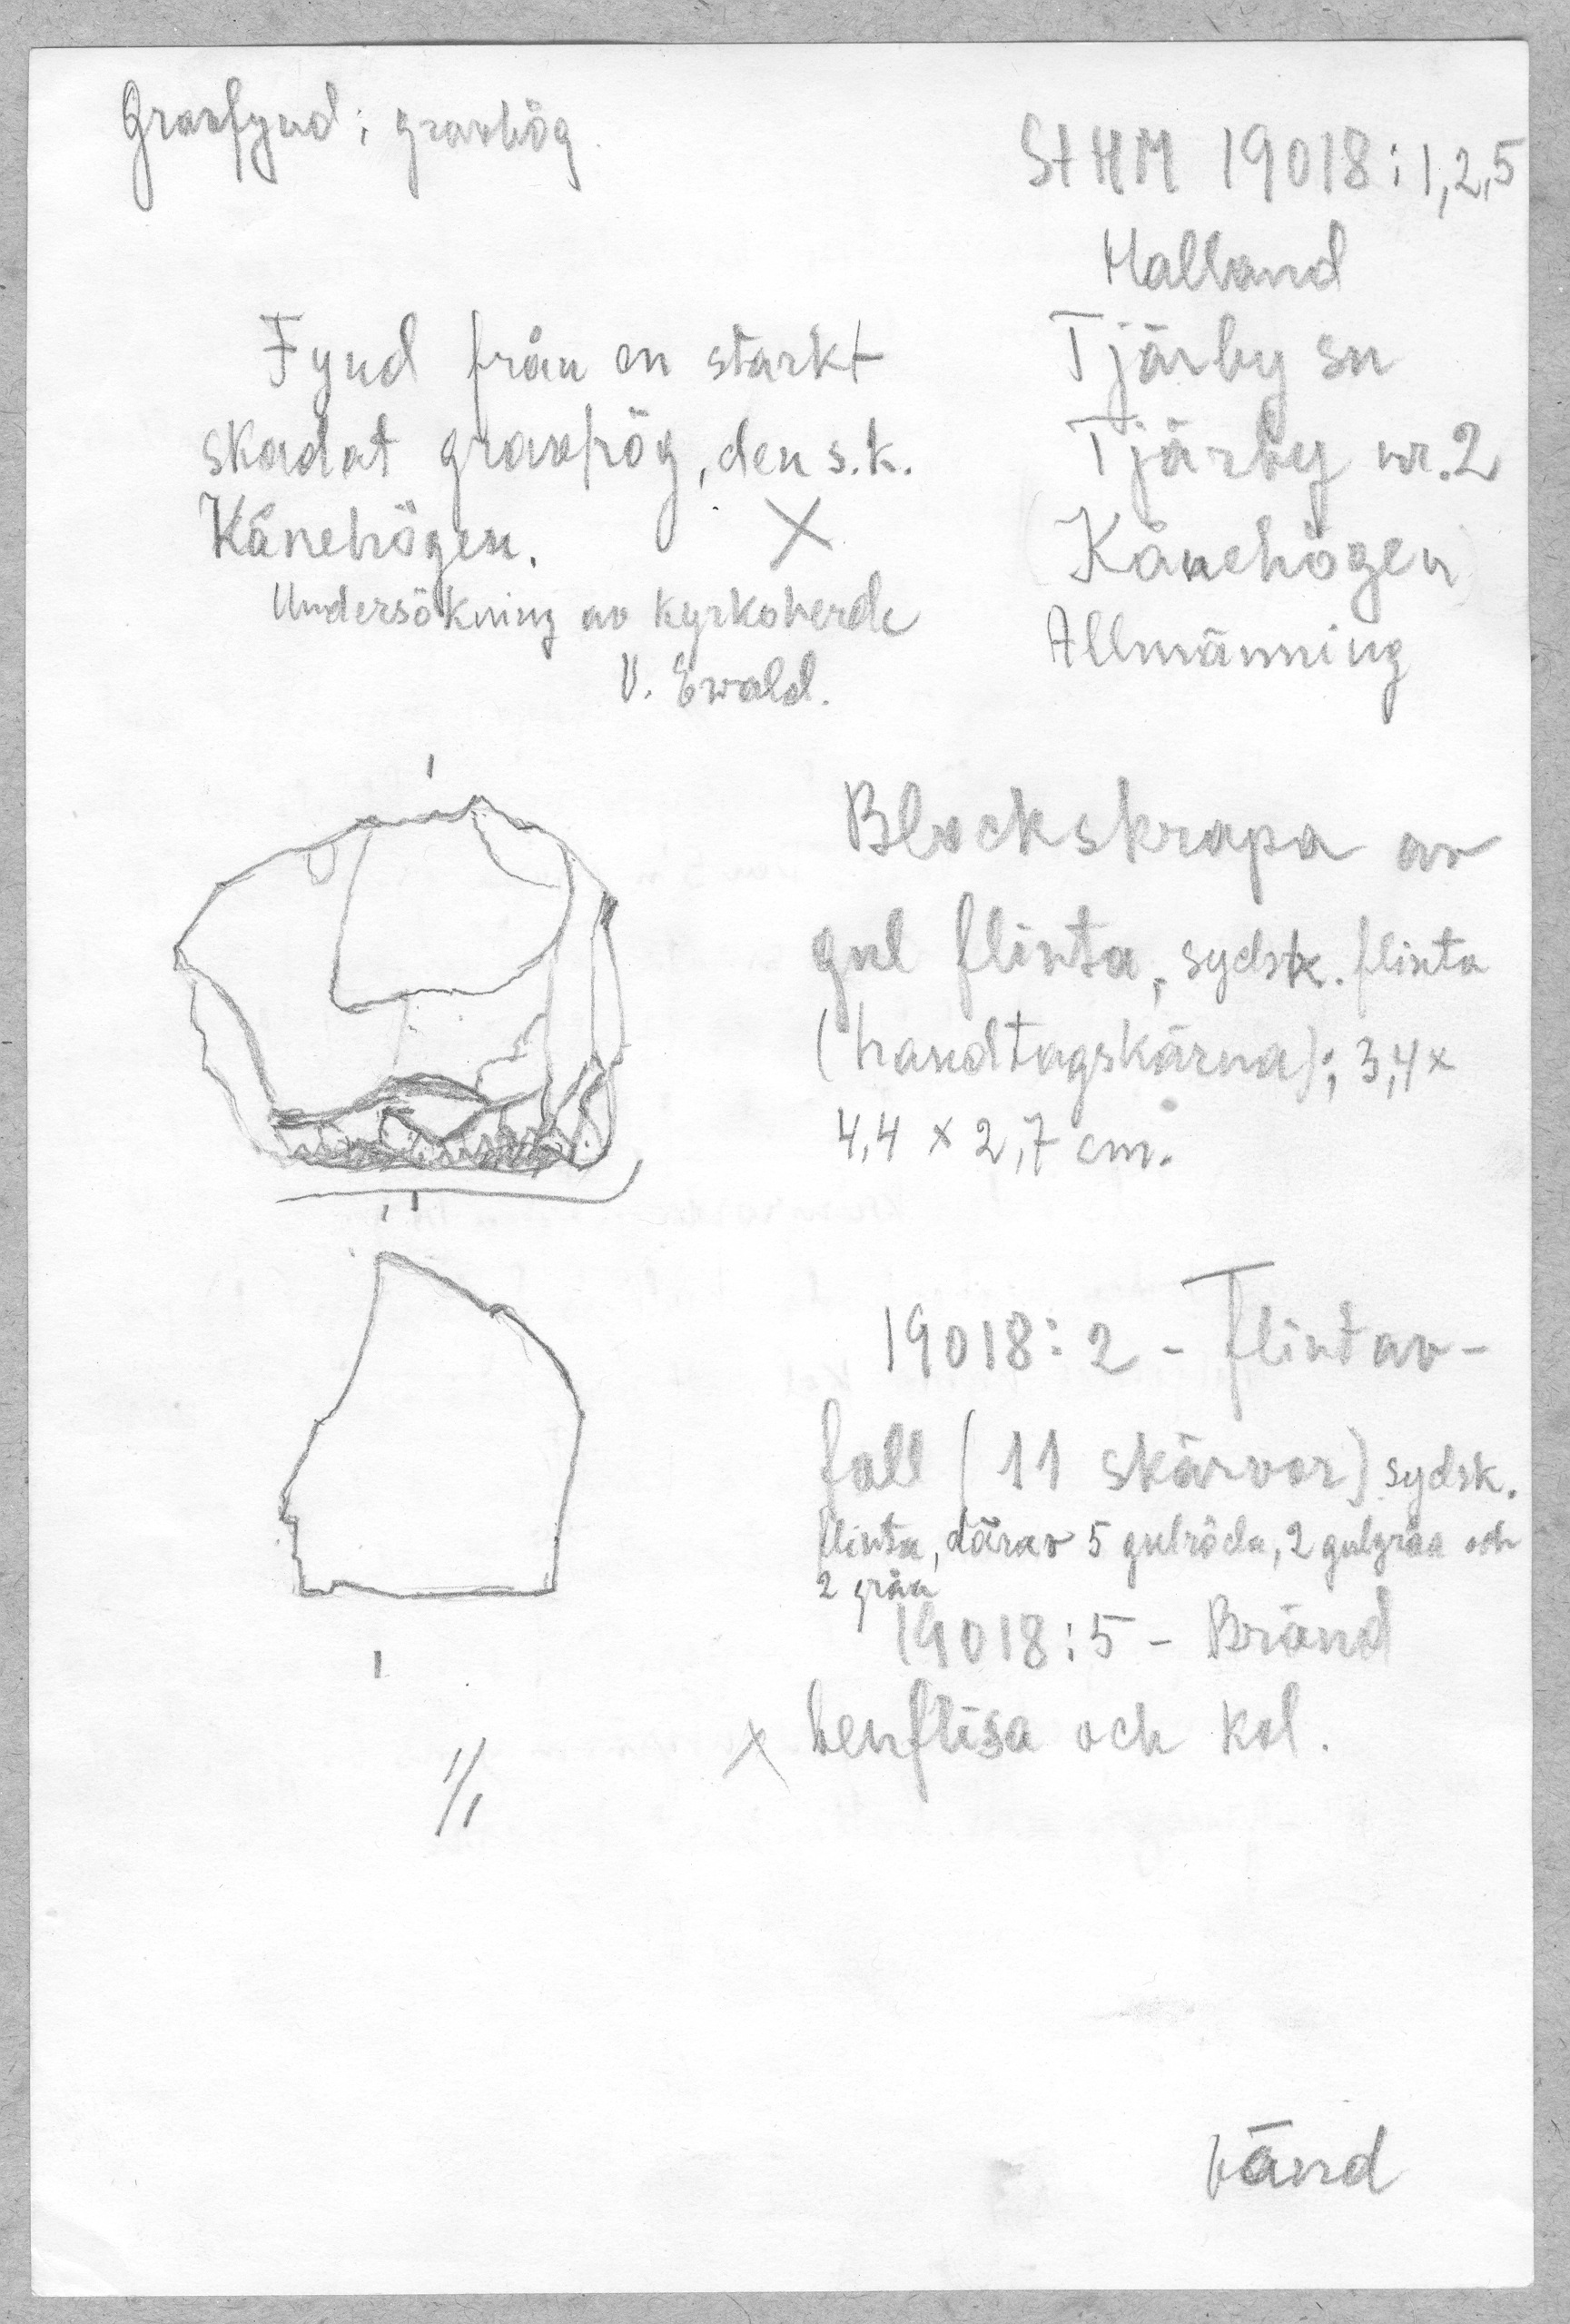 Gravfynd; gravhög.
StHM 19018:1,2,5
Halland
Tjärby sn
Tjärby nr.2
(Kånehögen)
Allmänning
Fynd från en starkt
skadat gravhög, den s.k.
Kånehögen. X
Undersökning av kyrkoherde
V. Ewald.
Blockskrapa av
gul flinta, sydsk. flinta
(handtagskärna); 3,4 x
4,4 x 2,7 cm.
19018:2 - Flintav-
fall (11 skärvor) sydsk.
flinta, därav 5 gulröda, 2 gulgråa och
2 gråa
19018:5 - Bränd
x benflisa och kol.
1/1
Vänd